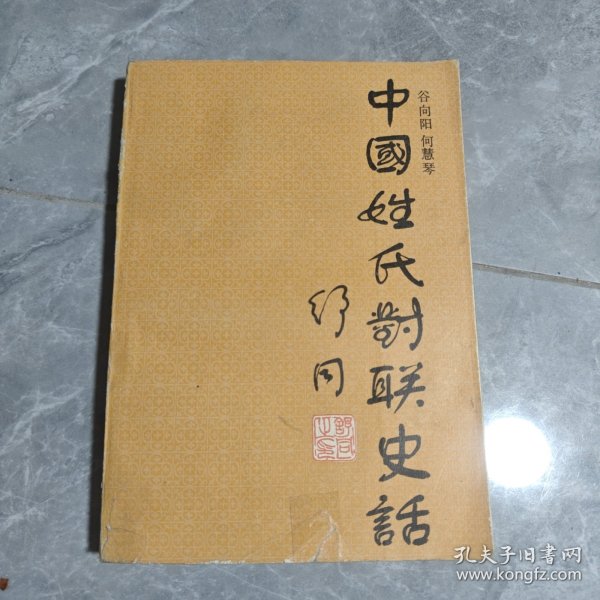 谷向阳 何慧琴
中國姓氏對联史話
舒同
舒同之印
孔夫子旧書网
www.kongfz.com